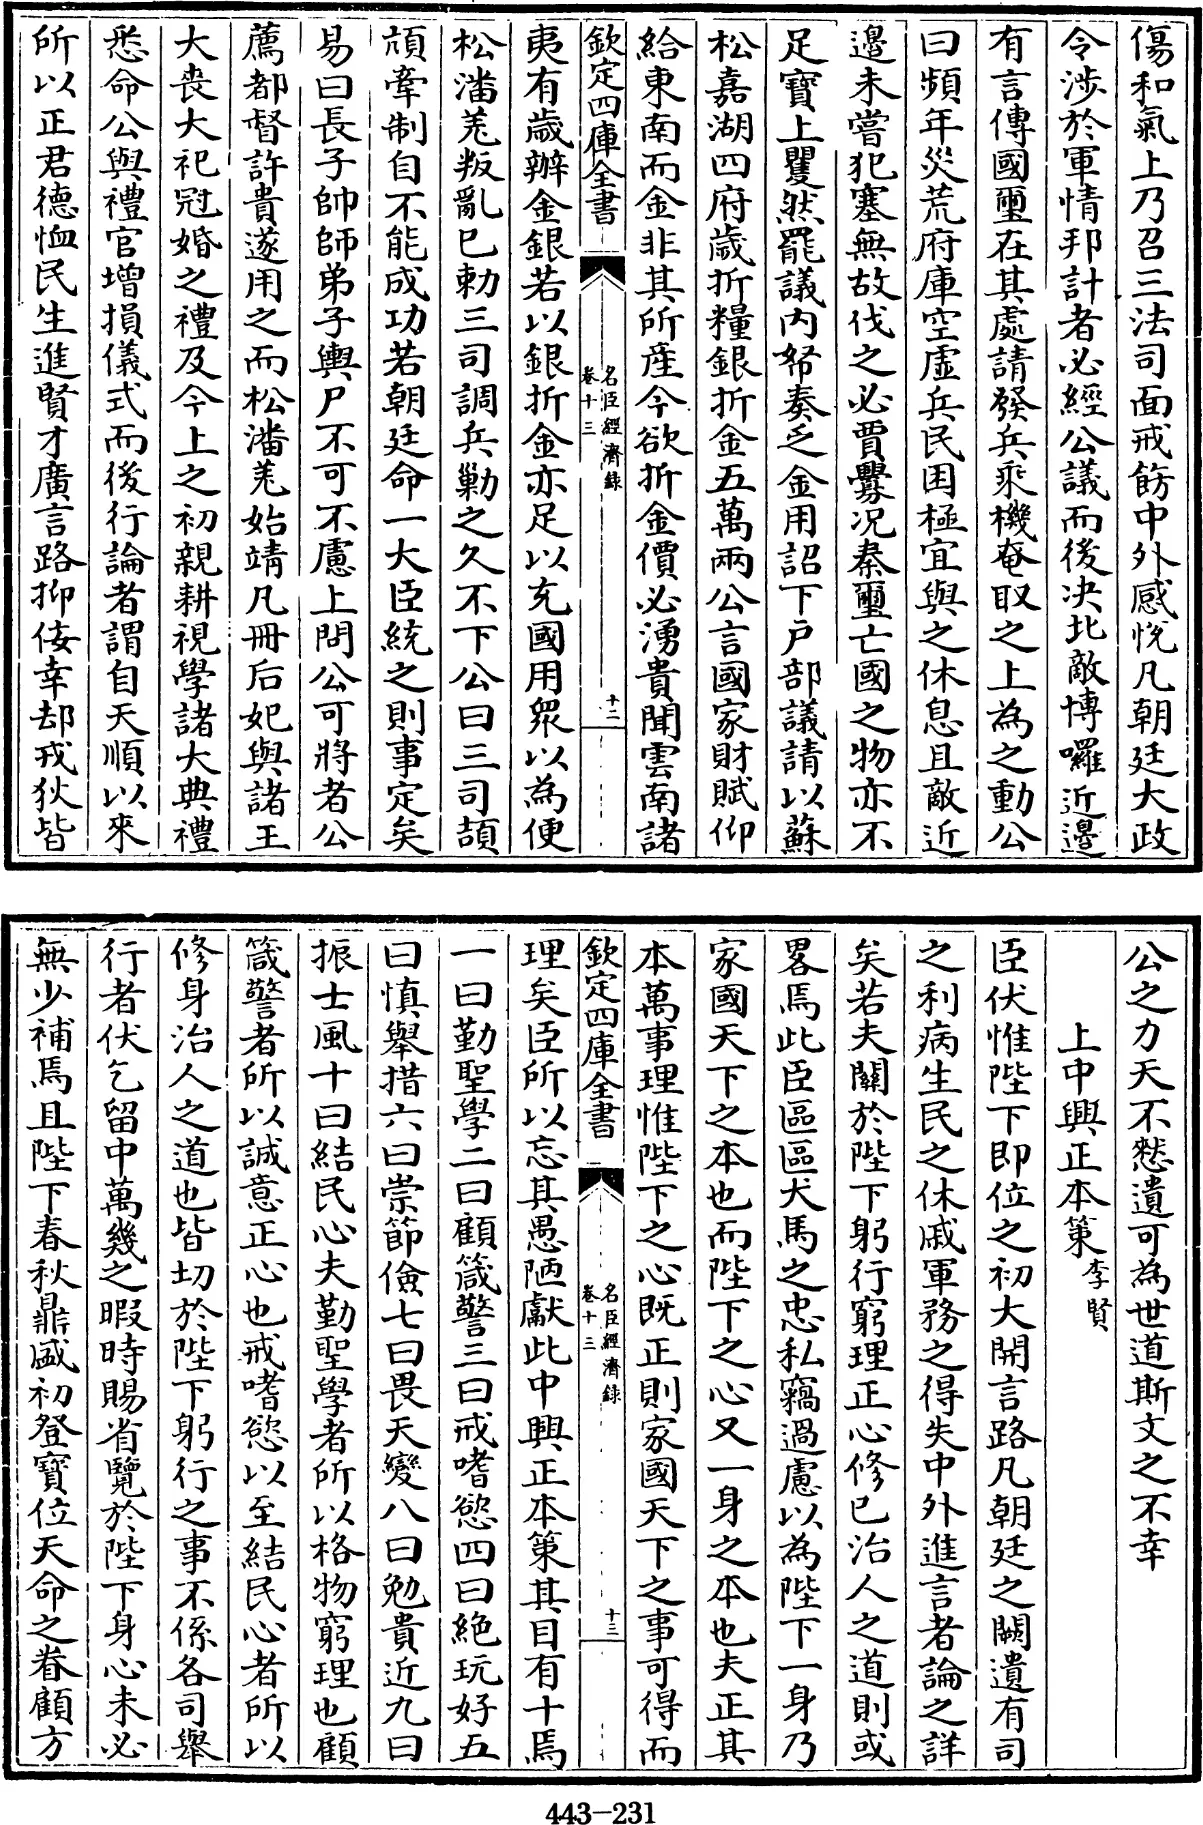 傷和氣上乃召三法司面戒飭中外感悅凡朝廷大政
令涉於軍情邦計者必經公議而後决北敵博囉近邊
有言傳國璽在其處請發兵乘機奄取之上為之動公
曰頻年災荒府庫空虛兵民困極宜與之休息且敵近
邊未嘗犯塞無故伐之必賈釁况秦璽亡國之物亦不
足寶上瞿然罷議内帑奏乏金用詔下戶部議請以蘇
松嘉湖四府歲折糧銀折金五萬兩公言國家財賦仰
給東南而金非其所產今欲折金價必湧貴聞雲南諸
欽定四庫全書
名臣經濟録
卷十三
十二
夷有歲辦金銀若以銀折金亦足以充國用衆以為便
松潘羌叛亂已勅三司調兵勦之久不下公曰三司頡
頏牽制自不能成功若朝廷命一大臣統之則事定矣
易曰長子帥師弟子輿尸不可不慮上問公可將者公
薦都督許貴遂用之而松潘羌始靖凡冊后妃與諸王
大喪大祀冠婚之禮及今上之初親耕視學諸大典禮
悉命公與禮官增損儀式而後行論者謂自天順以來
所以正君德恤民生進賢才廣言路抑倖幸却戎狄皆
公之力天不憖遺可為世道斯文之不幸
上中興正本策李賢
臣伏惟陛下即位之初大開言路凡朝廷之闕遺有司
之利病生民之休戚軍務之得失中外進言者論之詳
矣若夫關於陛下躬行窮理正心修己治人之道則或
畧焉此臣區區犬馬之忠私竊過慮以為陛下一身乃
家國天下之本也而陛下之心又一身之本也夫正其
本萬事理惟陛下之心既正則家國天下之事可得而
欽定四庫全書
名臣經濟録
卷十三
十三
理矣臣所以忘其愚陋獻此中興正本策其目有十焉
一曰勤聖學二曰顧箴警三曰戒嗜慾四曰絕玩好五
曰慎舉措六曰崇節儉七曰畏天變八曰勉貴近九曰
振士風十曰結民心夫勤聖學者所以格物窮理也顧
箴警者所以誠意正心也戒嗜慾以至結民心者所以
修身治人之道也皆切於陛下躬行之事不係各司舉
行者伏乞留中萬幾之暇時賜省覽於陛下身心未必
無少補焉且陛下春秋鼎盛初登寶位天命之眷顧方
443-231